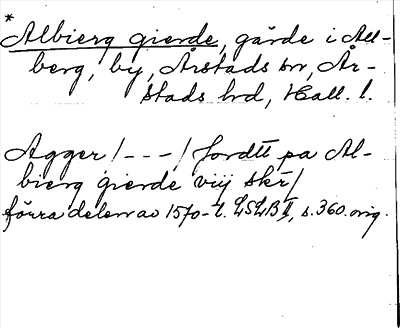 *
Albierg gierde, gärde i All-
berg, by, Årstads sn, År-
stads hd, Hall. l.
Agger /---/ Jordtt pa Al-
bierg gierde viij skr/
förra delen av 1570-t. LSLB II, s. 360. orig.